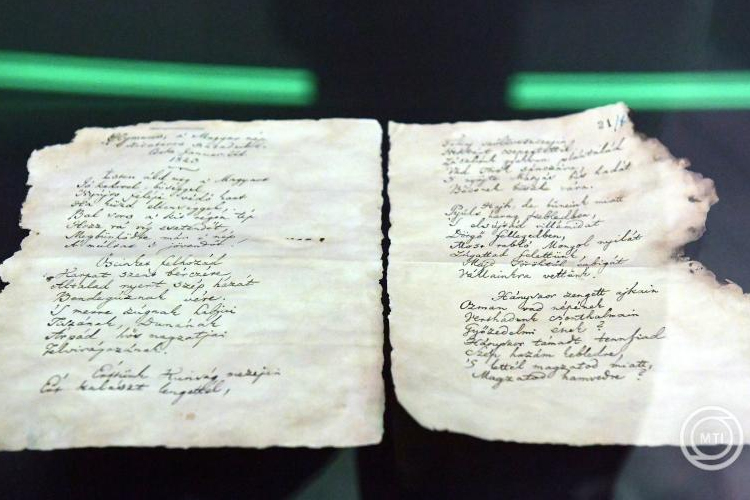 Hymnus, a' Magyar nép
zivataros századaiból.
Cseke Januar 22d
1823.
Isten áldd meg a' Magyart
Jó kedvvel, bőséggel,
Nyujts feléje védő kart
Ha küzd ellenséggel;
Bal sors a' kit régen tép
Hozz rá víg esztendőt,
Megbűnhődte már e' nép
A' multat 's jövendőt!
Őseinket felhozád
Kárpát szent bérczére,
Általad nyert szép hazát
Bendegúznak vére.
'S merre zúgnak habjai
Tiszának, Dunának,
Árpád hős magzatjai
Felvirágozának.
Értünk Kunság mezején
Ért kalászt lengettél,
21/
Tokaj szőlővesszein
Nektárt csepegtettél.
Zászlónk gyakran plántálád
Vad Török sánczára,
'S nyögte Mátyás bús hadát
Bécsnek büszke vára.
Hajh, de bűneink miatt
Gyúlt harag kebledben,
'S elsújtád villámidat
Dörgő fellegedben,
Most rabló Mongol nyilát
Zúgattad felettünk,
Majd Töröktől rabigát
Vállainkra vettünk.
Hányszor zengett ajkain
Ozman vad népének
Vert hadunk csonthalmain
Győzedelmi ének?
Hányszor támadt tenfiad
Szép hazám kebledre,
'S lettél magzatod miatt,
Magzatod hamvedre?
MTI